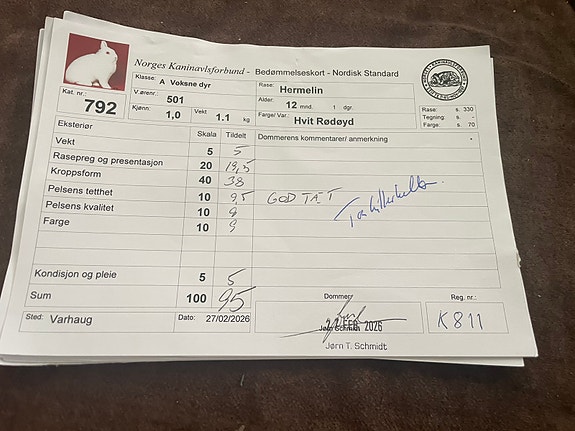 Norges Kaninavlsforbund - Bedømmelseskort - Nordisk Standard
Klasse: A Voksne dyr Rase: Hermelin
Kat. nr.: 792 V.ørenr: 501 Alder: 12 mnd. 1 dgr.
Kjønn: 1,0 Vekt 1.1 kg Farge/Var.: Hvit Rødøyd
Rase: s. 330
Tegning: s. -
Farge: s. 70
Eksteriør Skala Tildelt Dommerens kommentarer/ anmerkning
Vekt 5 5
Rasepreg og presentasjon 20 19,5
Kroppsform 40 38
Pelsens tetthet 10 9,5 GOD TÆT
Pelsens kvalitet 10
Farge 10 9
Kondisjon og pleie 5 5
Sum 100 95
Dommer: Reg. nr.:
K811
FEB 2026
Sted: Varhaug Dato: 27/02/2026
Jørn T. Schmidt